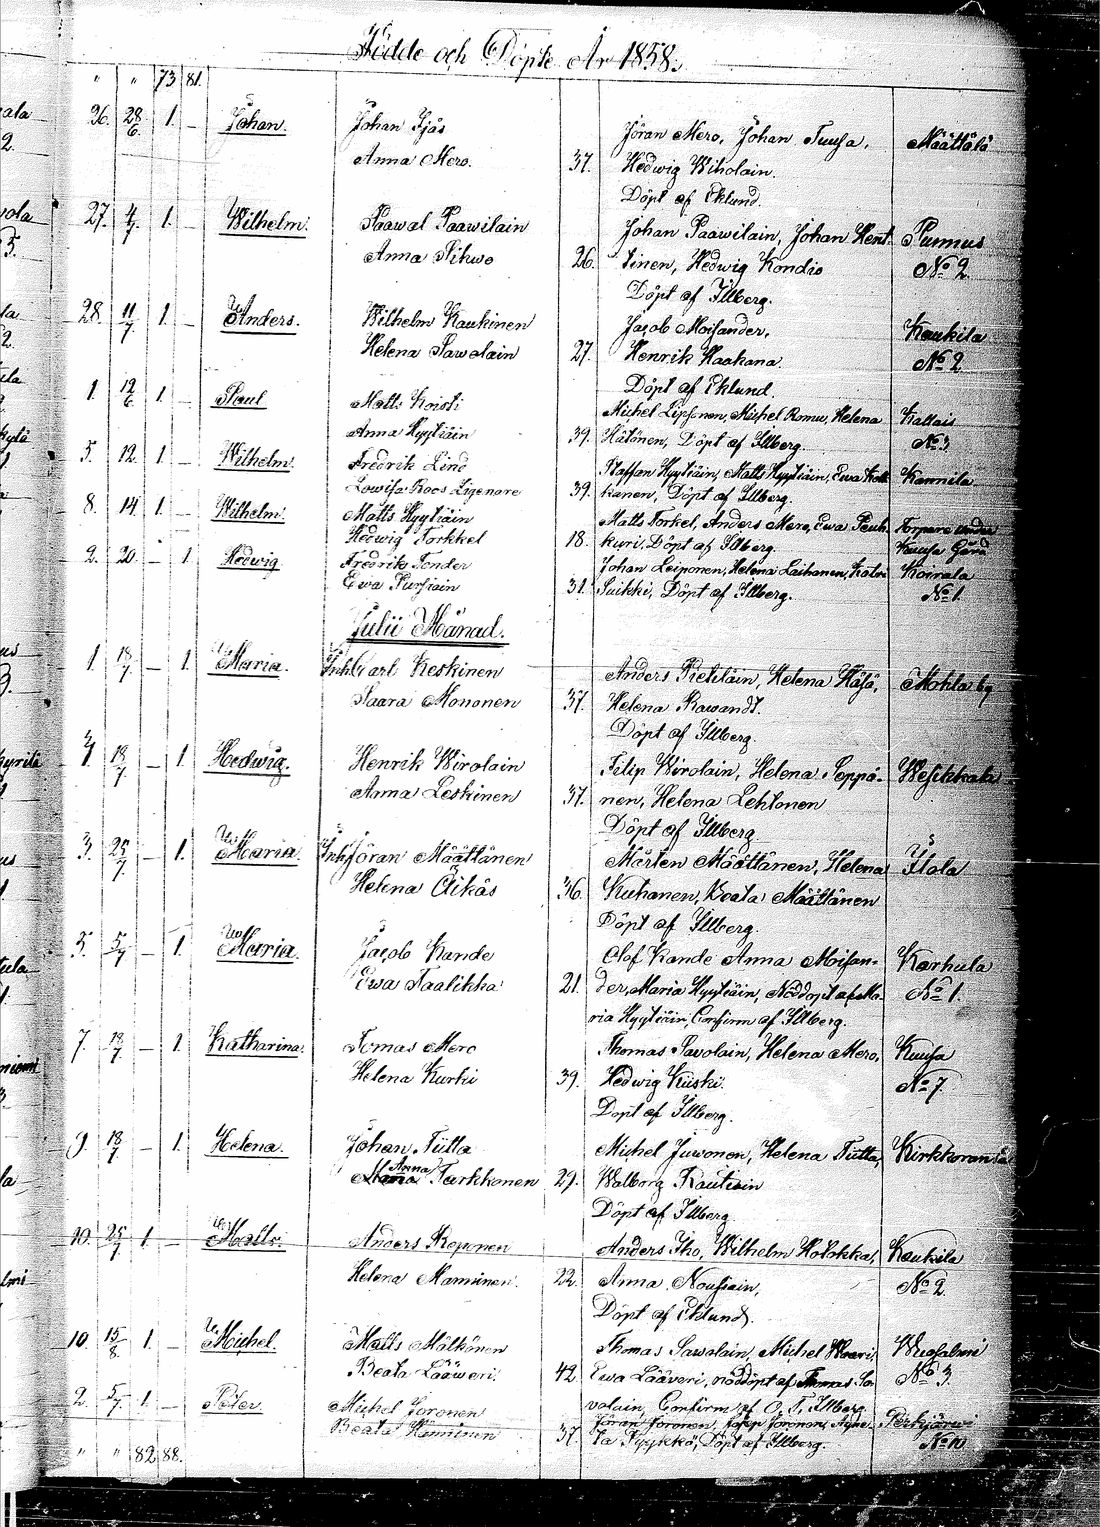 Födde och Döpte År 1858.
" " 73 81.
26. 28/6 1. – Johan. Johan Sjös Jöran Mero, Johan Tuusa, Määttälä
Anna Mero. 37. Hedwig Wiholain.
Döpt af Eklund.
27. 4/7 1. – Wilhelm. Paawal Paawilain Johan Paawilain, Johan Hent- Punnus
Anna Sihwo 26. tinen, Hedwig Kondio No 2
Döpt af Illberg.
28. 11/7 1. – Anders. Wilhelm Kaukinen Jacob Moisander, Kaukila
Helena Sawolain 27. Henrik Haakana. No 2
Döpt af Eklund.
1. 12/6 1. – Paul Matts Koisti Michel Lipsonen, Michel Romu, Helena Kallais
Anna Hyytiäin 39. Hätönen, Döpt af Illberg. No 3.
5. 12. 1. – Wilhelm. Fredrik Lind Staffan Hyytiäin, Matts Hyytiäin, Ewa Kok- Kannila
Lowisa Roos Ligenare 39. kanen, Döpt af Illberg.
8. 14. 1. – Wilhelm. Matts Hyytiäin Matts Torkel, Anders Mero, Ewa Peuk- Torpare under
Hedwig Torkkel 18. kuri. Döpt af Illberg. Kuusa Gård
2. 20. – 1 Hedwig Fredrik Tonder Johan Leiponen, Helena Laihanen, Katri Koirala
Ewa Pursiain 31. Suikki, Döpt af Illberg. No 1.
Julii Månad.
1. 18/7 – 1. Maria. Inh. Carl Keskinen Anders Pietiläin, Helena Häsä, Mohla by
Saara Mononen 37. Helena Rawandt.
Döpt af Illberg.
1. 18/7 – 1. Hedwig. Henrik Wirolain Filip Wirolain, Helena Seppä- Wesikkala
Anna Leskinen 37. nen, Helena Lehtonen
Döpt af Illberg.
3. 25/7 – 1. Maria. Inh. Jöran Määttänen Mårten Määttänen, Helena Itala
Helena Äikäs 36. Kuhanen, Beata Määttänen
Döpt af Illberg.
5. 5/7 – 1. Maria. Jacob Kande Olof Kande Anna Moisan- Karhula
Ewa Taalikka 21. der, Maria Hyytiäin, Nöddöpt af Ma- No 1.
ria Hyytiäin, Confirm af Illberg.
7. 18/7 – 1. Katharina. Tomas Mero Thomas Savolain, Helena Mero, Kuusa
Helena Kurki 39. Hedwig Kiiski. No 7.
Döpt af Illberg.
9. 18/7 – 1. Helena. Johan Tiitta Michel Juwonen, Helena Tiitta, Kirkkoranta
Anna Turkkonen 29. Walborg Rautiain
Döpt af Illberg
10. 25/7 1. – Matts. Anders Roponen Anders Iho, Wilhelm Holokka, Kaukila
Helena Manninen. 22. Anna Nousiain, No 2.
Döpt af Eklund.
10. 15/8. 1. – Michel. Matts Mälkönen Thomas Sawolain, Michel Waari, Wuosalmi
Beata Lääweri. 42. Ewa Lääveri, nöddöpt af Thomas Sa- No 3.
volain, Confirm af O. F. Illberg.
2. 5/7. 1. – Peter. Michel Toronen Jöran Toronen, Josep Toronen, Agne- Perkjärwi
Beata Manninen 37. ta Pyykkö, Döpt af Illberg. No 10.
" " 82 88.